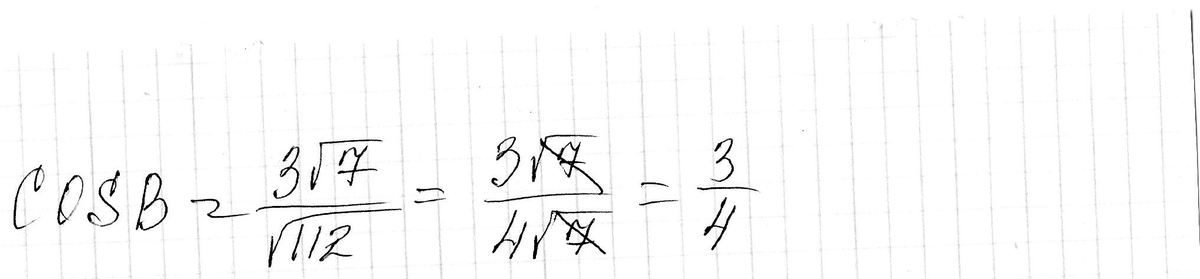 COSB = 3√7/√112 = 3√7/4√7 = 3/4